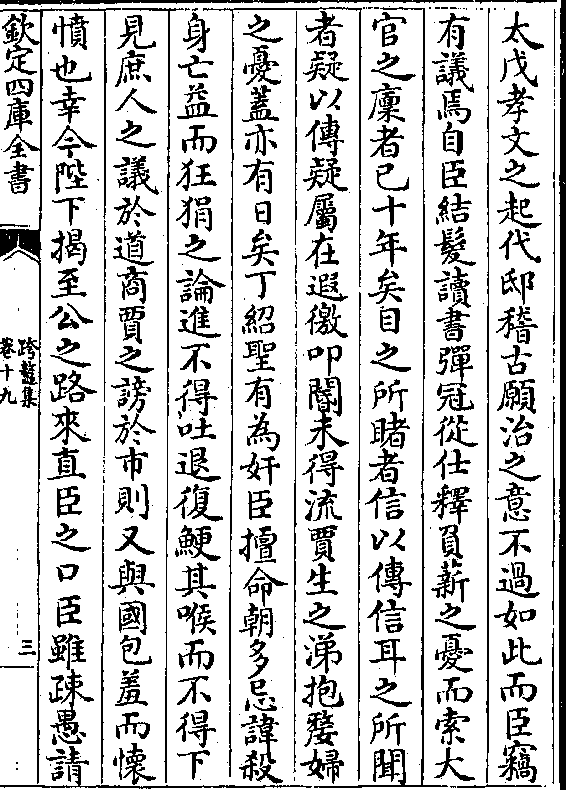 太戊孝文之起代邸稽古願治之意不過如此而臣竊
有議焉自臣結髮讀書彈冠從仕釋負薪之憂而索大
官之廩者已十年矣目之所睹者信以傳信耳之所聞
者疑以傳疑屬在遐徼叩閽未得流賈生之涕抱嫠婦
之憂蓋亦有日矣丁紹聖有為奸臣擅命朝多忌諱殺
身亡益而狂狷之論進不得吐退復鯁其喉而不得下
見庶人之議於道商賈之謗於市則又與國包羞而懷
憤也幸今陛下揭至公之路來直臣之口臣雖疎愚請
欽定四庫全書
跨鼇集
卷十九
三